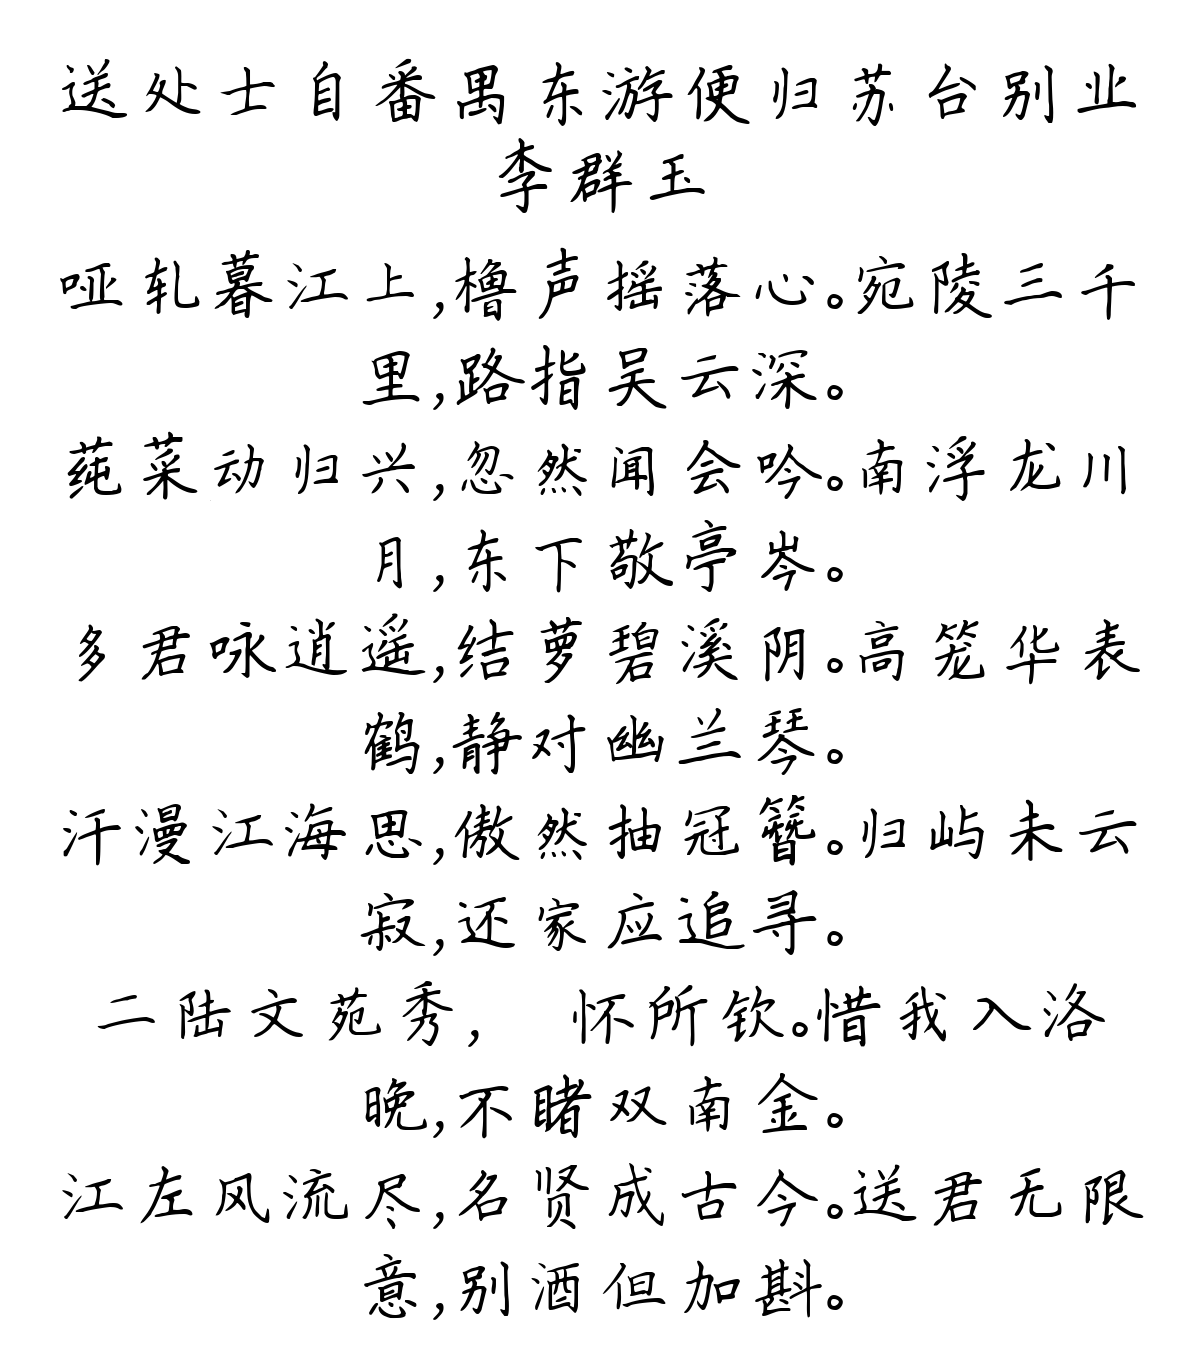 送处士自番禺东游便归苏台别业
李群玉
哑轧暮江上,橹声摇落心。宛陵三千
里,路指吴云深。
莼菜动归兴,忽然闻会吟。南浮龙川
月,东下敬亭岑。
多君咏逍遥,结萝碧溪阴。高笼华表
鹤,静对幽兰琴。
汗漫江海思,傲然抽冠簪。归屿未云
寂,还家应追寻。
二陆文苑秀, 怀所钦。惜我入洛
晚,不睹双南金。
江左风流尽,名贤成古今。送君无限
意,别酒但加斟。